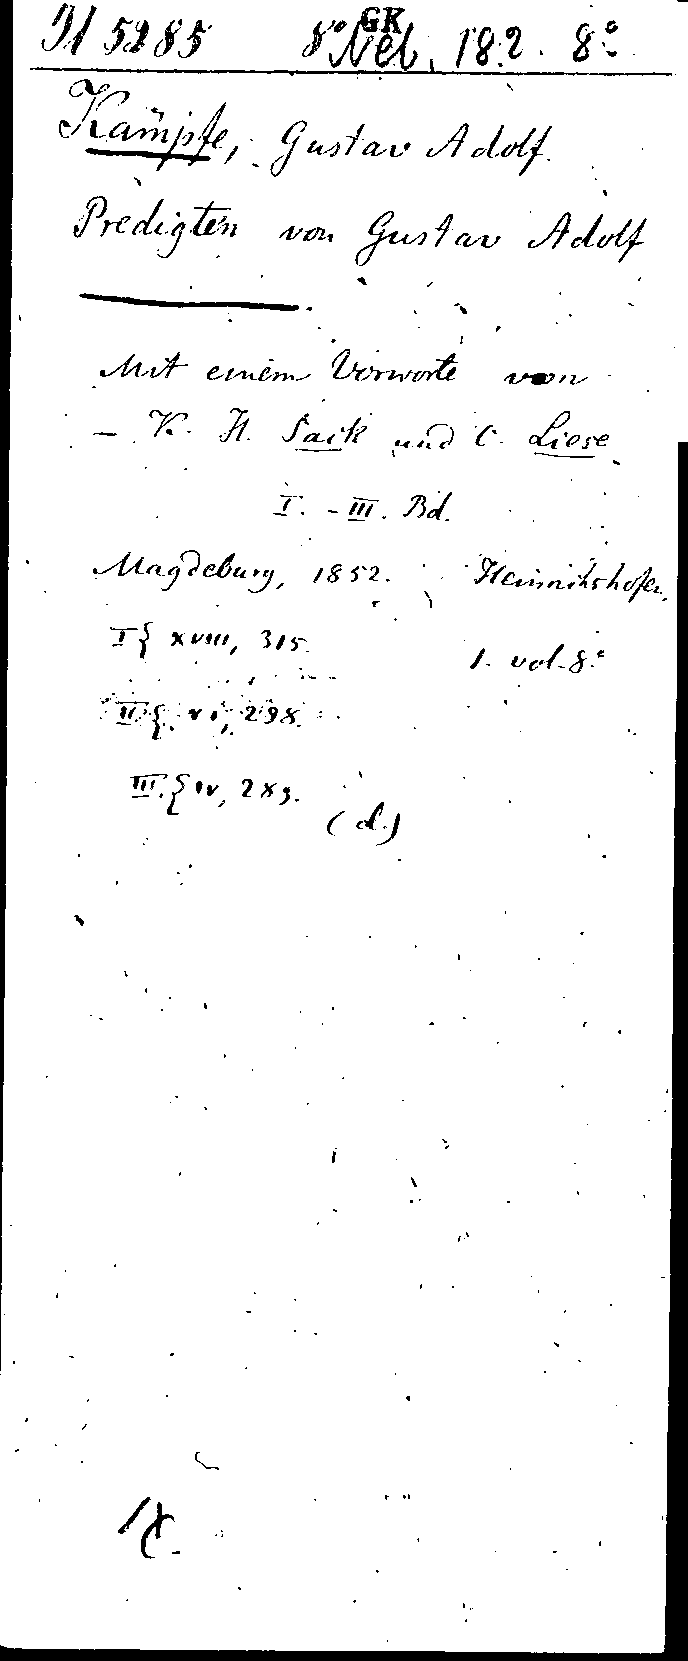 5285 8° GK Nel. 182. 8°
Kämpfe, Gustav Adolf.
Predigten von Gustav Adolf
Mit einem Vorworte von
– K. H. Sack und C. Liese
I. – III. Bd.
Magdeburg, 1852. Heinrichshofen,
I{ XVIII, 315.
1. vol. 8.°
II{ VI, 298.
III.{ IV, 289.
(d.)